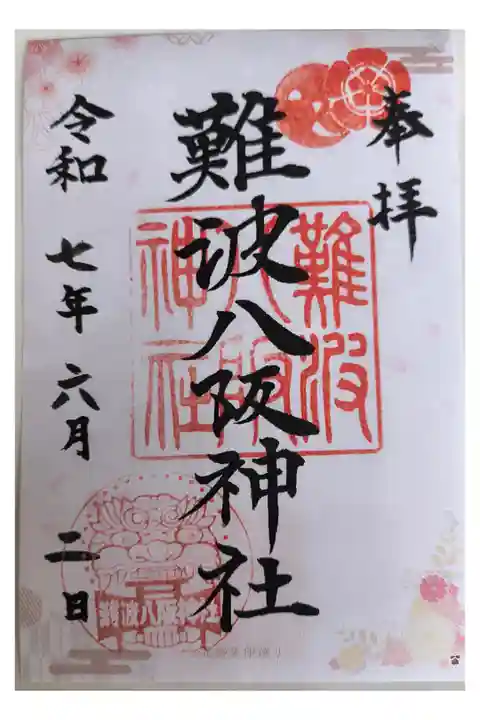 奉拝
難波八阪神社
令和七年六月二日
難波
八阪
神社
難波八阪神社